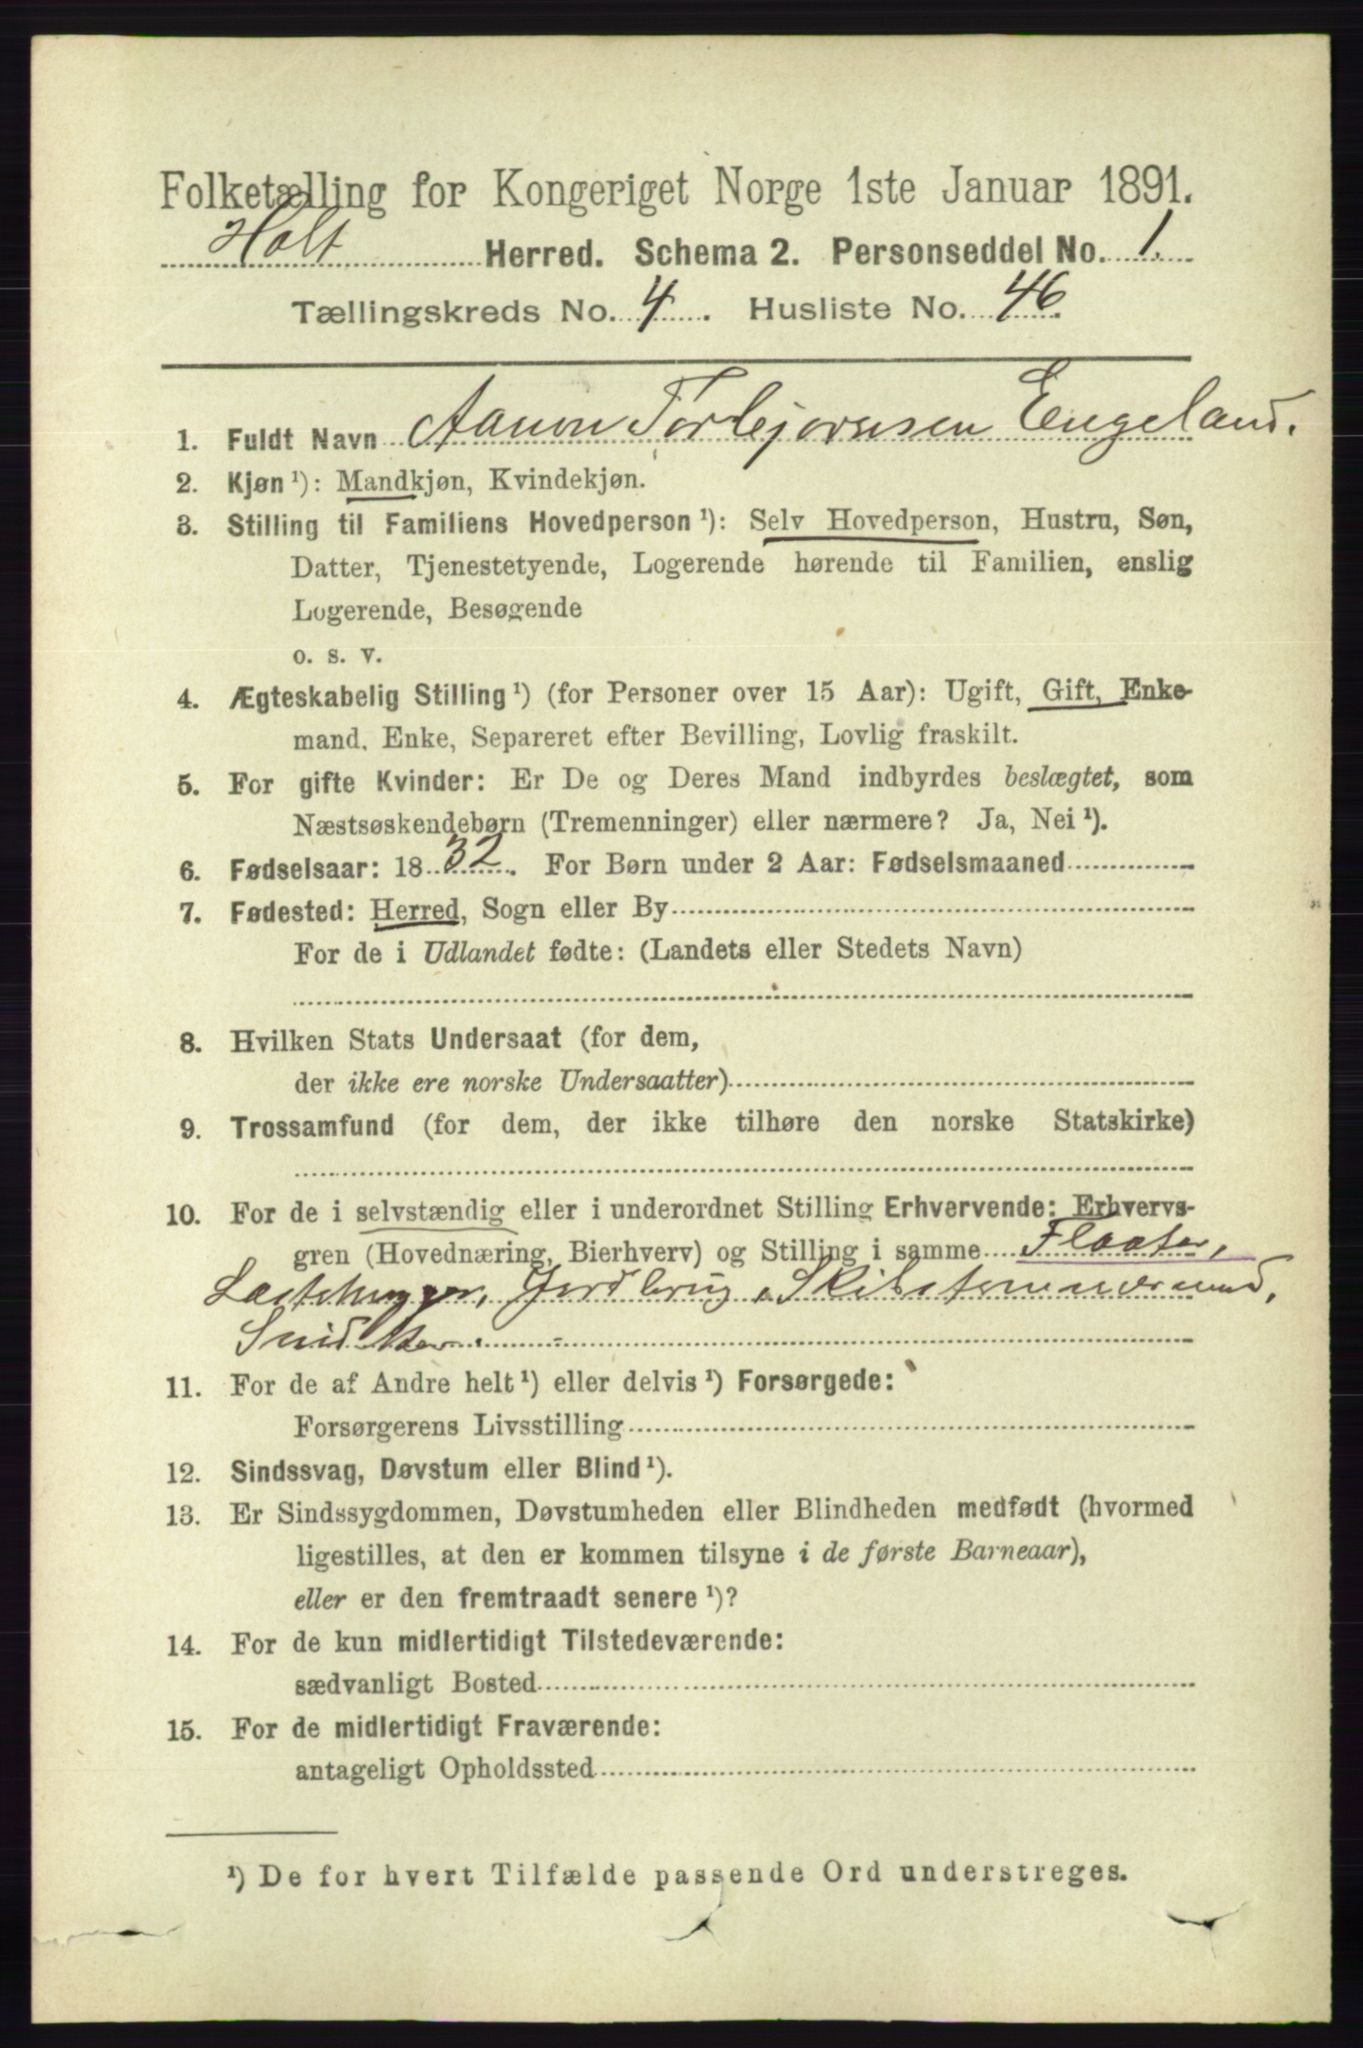 Folketælling for Kongeriget Norge 1ste Januar 1891.
Holt Herred. Schema 2. Personseddel No. 1.
Tællingskreds No. 4. Husliste No. 46.
1. Fuldt Navn Aanon Torbjørnsen Engeland.
2. Kjøn ¹): Mandkjøn, Kvindekjøn.
3. Stilling til Familiens Hovedperson ¹): Selv Hovedperson, Hustru, Søn,
Datter, Tjenestetyende, Logerende hørende til Familien, enslig
Logerende, Besøgende
o. s. v.
4. Ægteskabelig Stilling ¹) (for Personer over 15 Aar): Ugift, Gift, Enke-
mand, Enke, Separeret efter Bevilling, Lovlig fraskilt.
5. For gifte Kvinder: Er De og Deres Mand indbyrdes beslægtet, som
Næstsøskendebørn (Tremenninger) eller nærmere? Ja, Nei ¹).
6. Fødselsaar: 1832. For Børn under 2 Aar: Fødselsmaaned
7. Fødested: Herred, Sogn eller By
For de i Udlandet fødte: (Landets eller Stedets Navn)
8. Hvilken Stats Undersaat (for dem,
der ikke ere norske Undersaatter)
9. Trossamfund (for dem, der ikke tilhøre den norske Statskirke)
10. For de i selvstændig eller i underordnet Stilling Erhvervende: Erhvervs-
gren (Hovednæring, Bierhverv) og Stilling i samme Fløder,
Jordbrug, Skibstømmermand,
Snidker.
11. For de af Andre helt ¹) eller delvis ¹) Forsørgede:
Forsørgerens Livsstilling
12. Sindssvag, Døvstum eller Blind ¹).
13. Er Sindssygdommen, Døvstumheden eller Blindheden medfødt (hvormed
ligestilles, at den er kommen tilsyne i de første Barneaar),
eller er den fremtraadt senere ¹)?
14. For de kun midlertidigt Tilstedeværende:
sædvanligt Bosted
15. For de midlertidigt Fraværende:
antageligt Opholdssted
¹) De for hvert Tilfælde passende Ord understreges.